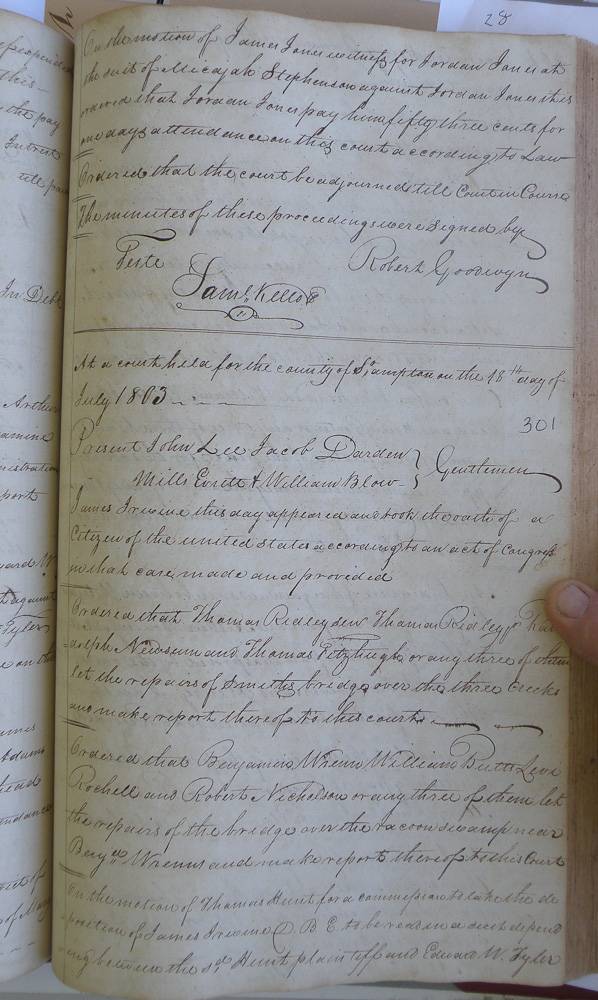 28
On the motion of James Jones witness for Jordan Jones at
the suit of Micajah Stephenson against Jordan Jones it is
ordered that Jordan Jones pay him fifty three cents for
one days attendance on this court according to Law
Ordered that the court be adjourned till Court in Course
The minutes of these proceedings were signed by
Teste Robert Goodwyn
Saml. Kello
At a court held for the county of S.ampton on the 18th day of
July 1803
301
Present John Lee Jacob Darden
Mills Everitt & William Blow } Gentlemen
James Irwine this day appeared and took the oath of a
Citizen of the united States according to an act of Congress
in that case made and provided
Ordered that Thomas Ridley senr Thomas Ridley jr
Newsum and Thomas Fitzhugh or any three of them
let the repairs of Smiths bridge over the three Creeks
and make report thereof to this court
Ordered that Benjamin Wrenn William Butts Levi
Rochell and Robert Nicholson or any three of them let
the repairs of the bridge over the racoon swamp near
Benj. Wrenns and make report thereof to this Court
On the motion of Thomas Hunt for a commission to take the de
position of James Irwine D. B. E. to be read in a suit depend
ing between the sd Hunt plaintiff and Edward W. Tyler